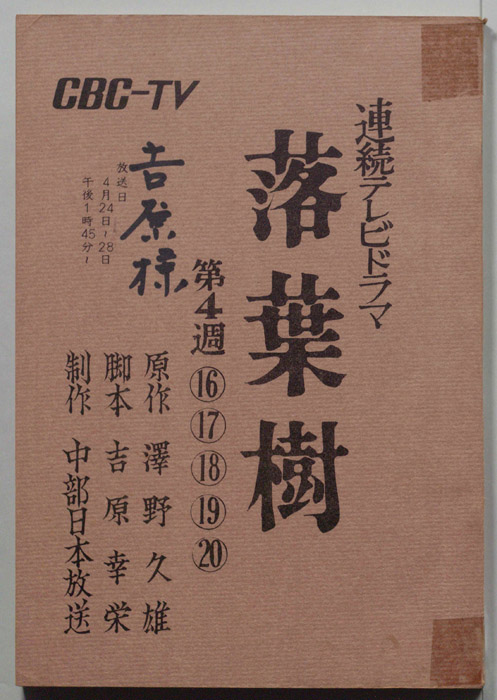 CBC-TV
連続テレビドラマ
落葉樹
第4週 ⑯ ⑰ ⑱ ⑲ ⑳
吉原様
放送日
4月24日~28日
午後1時45分~
原作 澤野久雄
脚本 吉原幸栄
制作 中部日本放送